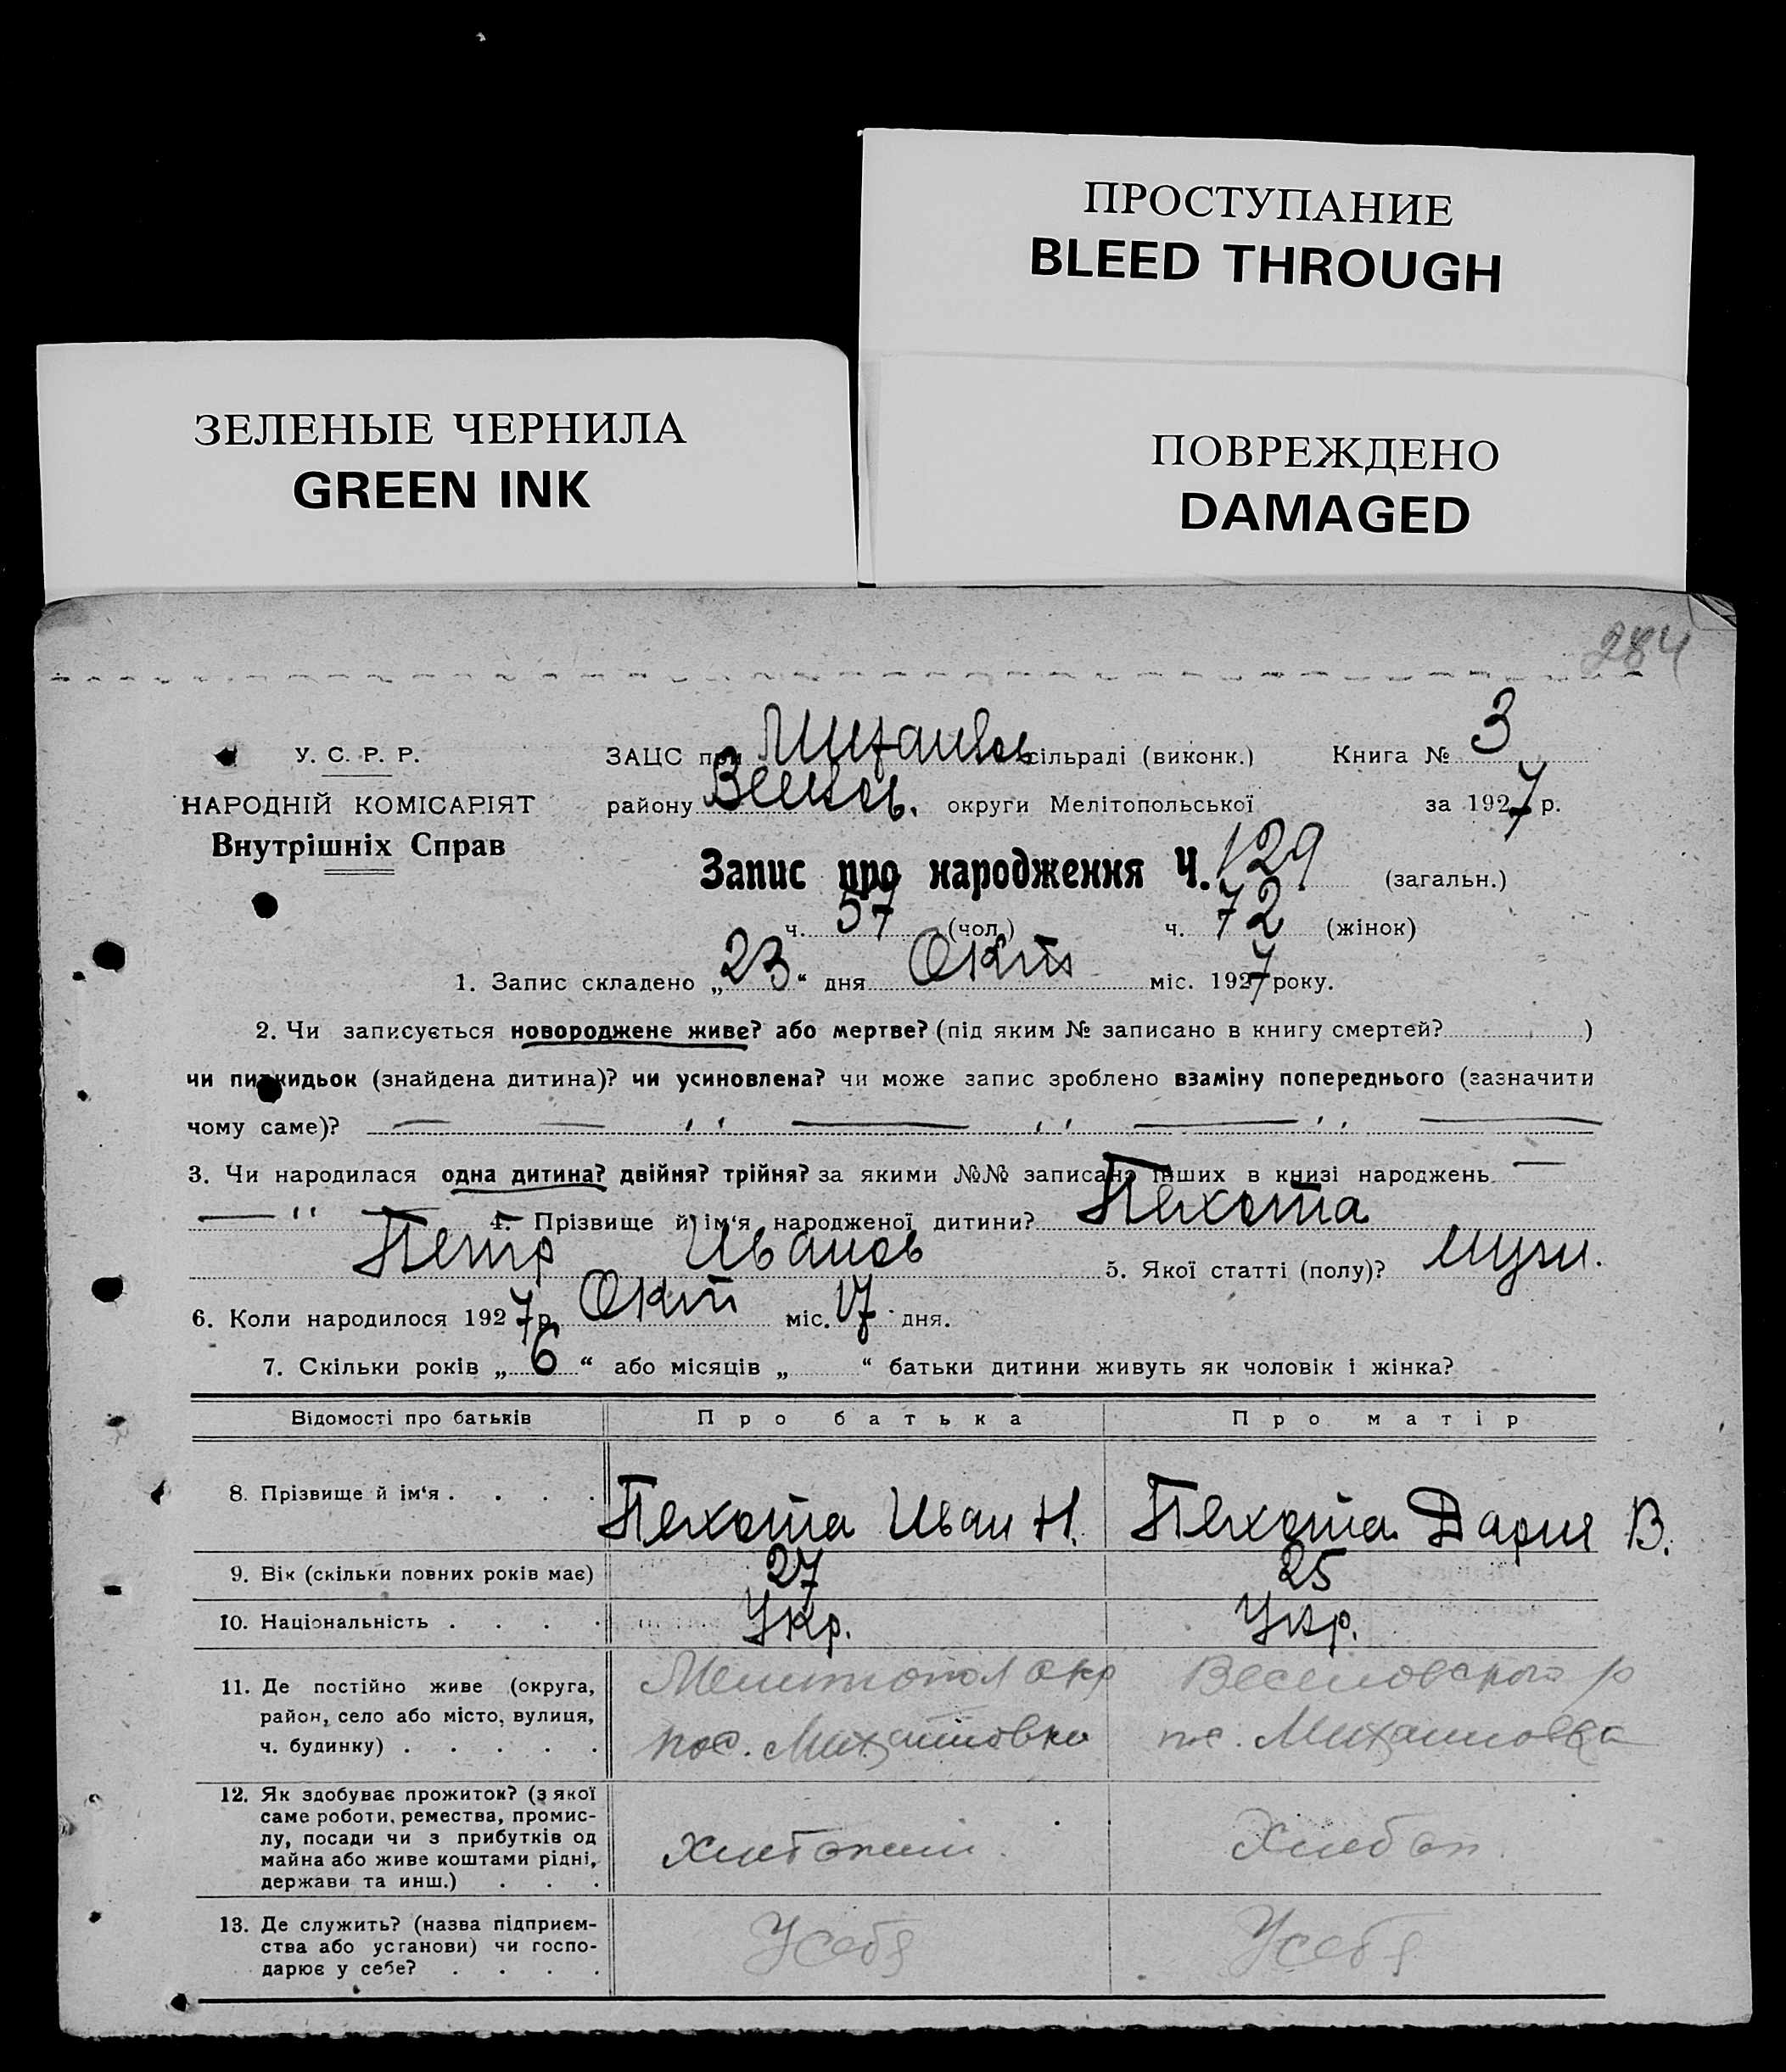 ПРОСТУПАНИЕ
BLEED THROUGH
ЗЕЛЕНЫЕ ЧЕРНИЛА
GREEN INK
ПОВРЕЖДЕНО
DAMAGED
284
У. С. Р. Р.
НАРОДНІЙ КОМІСАРІЯТ
Внутрішніх Справ
ЗАЦС при сільраді (виконк.) Книга № 3
району округи Мелітопольської за 1927 р.
Запис про народження Ч. 129 (загальн.)
ч. 57 (чол.) ч. 72 (жінок)
1. Запис складено „23“ дня Окт міс. 1927 року.
2. Чи записується новороджене живе? або мертве? (під яким № записано в книгу смертей? )
чи підкидьок (знайдена дитина)? чи усиновлена? чи може запис зроблено взаміну попереднього (зазначити
чому саме)?
3. Чи народилася одна дитина? двійня? трійня? за якими №№ записано інших в книзі народжень
4. Прізвище й ім‘я народженої дитини? Пехота
Петр Иванов 5. Якої статті (полу)? муж.
6. Коли народилося 1927 р. Окт міс. 17 дня.
7. Скільки років „6“ або місяців „ “ батьки дитини живуть як чоловік і жінка?
Відомості про батьків Про батька Про матір
8. Прізвище й ім‘я . . . . Пехота Иван Н. Пехота Дария В.
9. Вік (скільки повних років має) 27 25
10. Національність . . . . Укр. Укр.
11. Де постійно живе (округа,
район, село або місто, вулиця,
ч. будинку) . . . . .
Мелитопол окр Веселовского р
пос. Михайловка пос. Михайловка
12. Як здобуває прожиток? (з якої
саме роботи, ремества, промис-
лу, посади чи з прибутків од
майна або живе коштами рідні,
держави та инш.) . . .
Хлебоп.
13. Де служить? (назва підприєм-
ства або установи) чи госпо-
дарює у себе? . . . .
У себя У себя